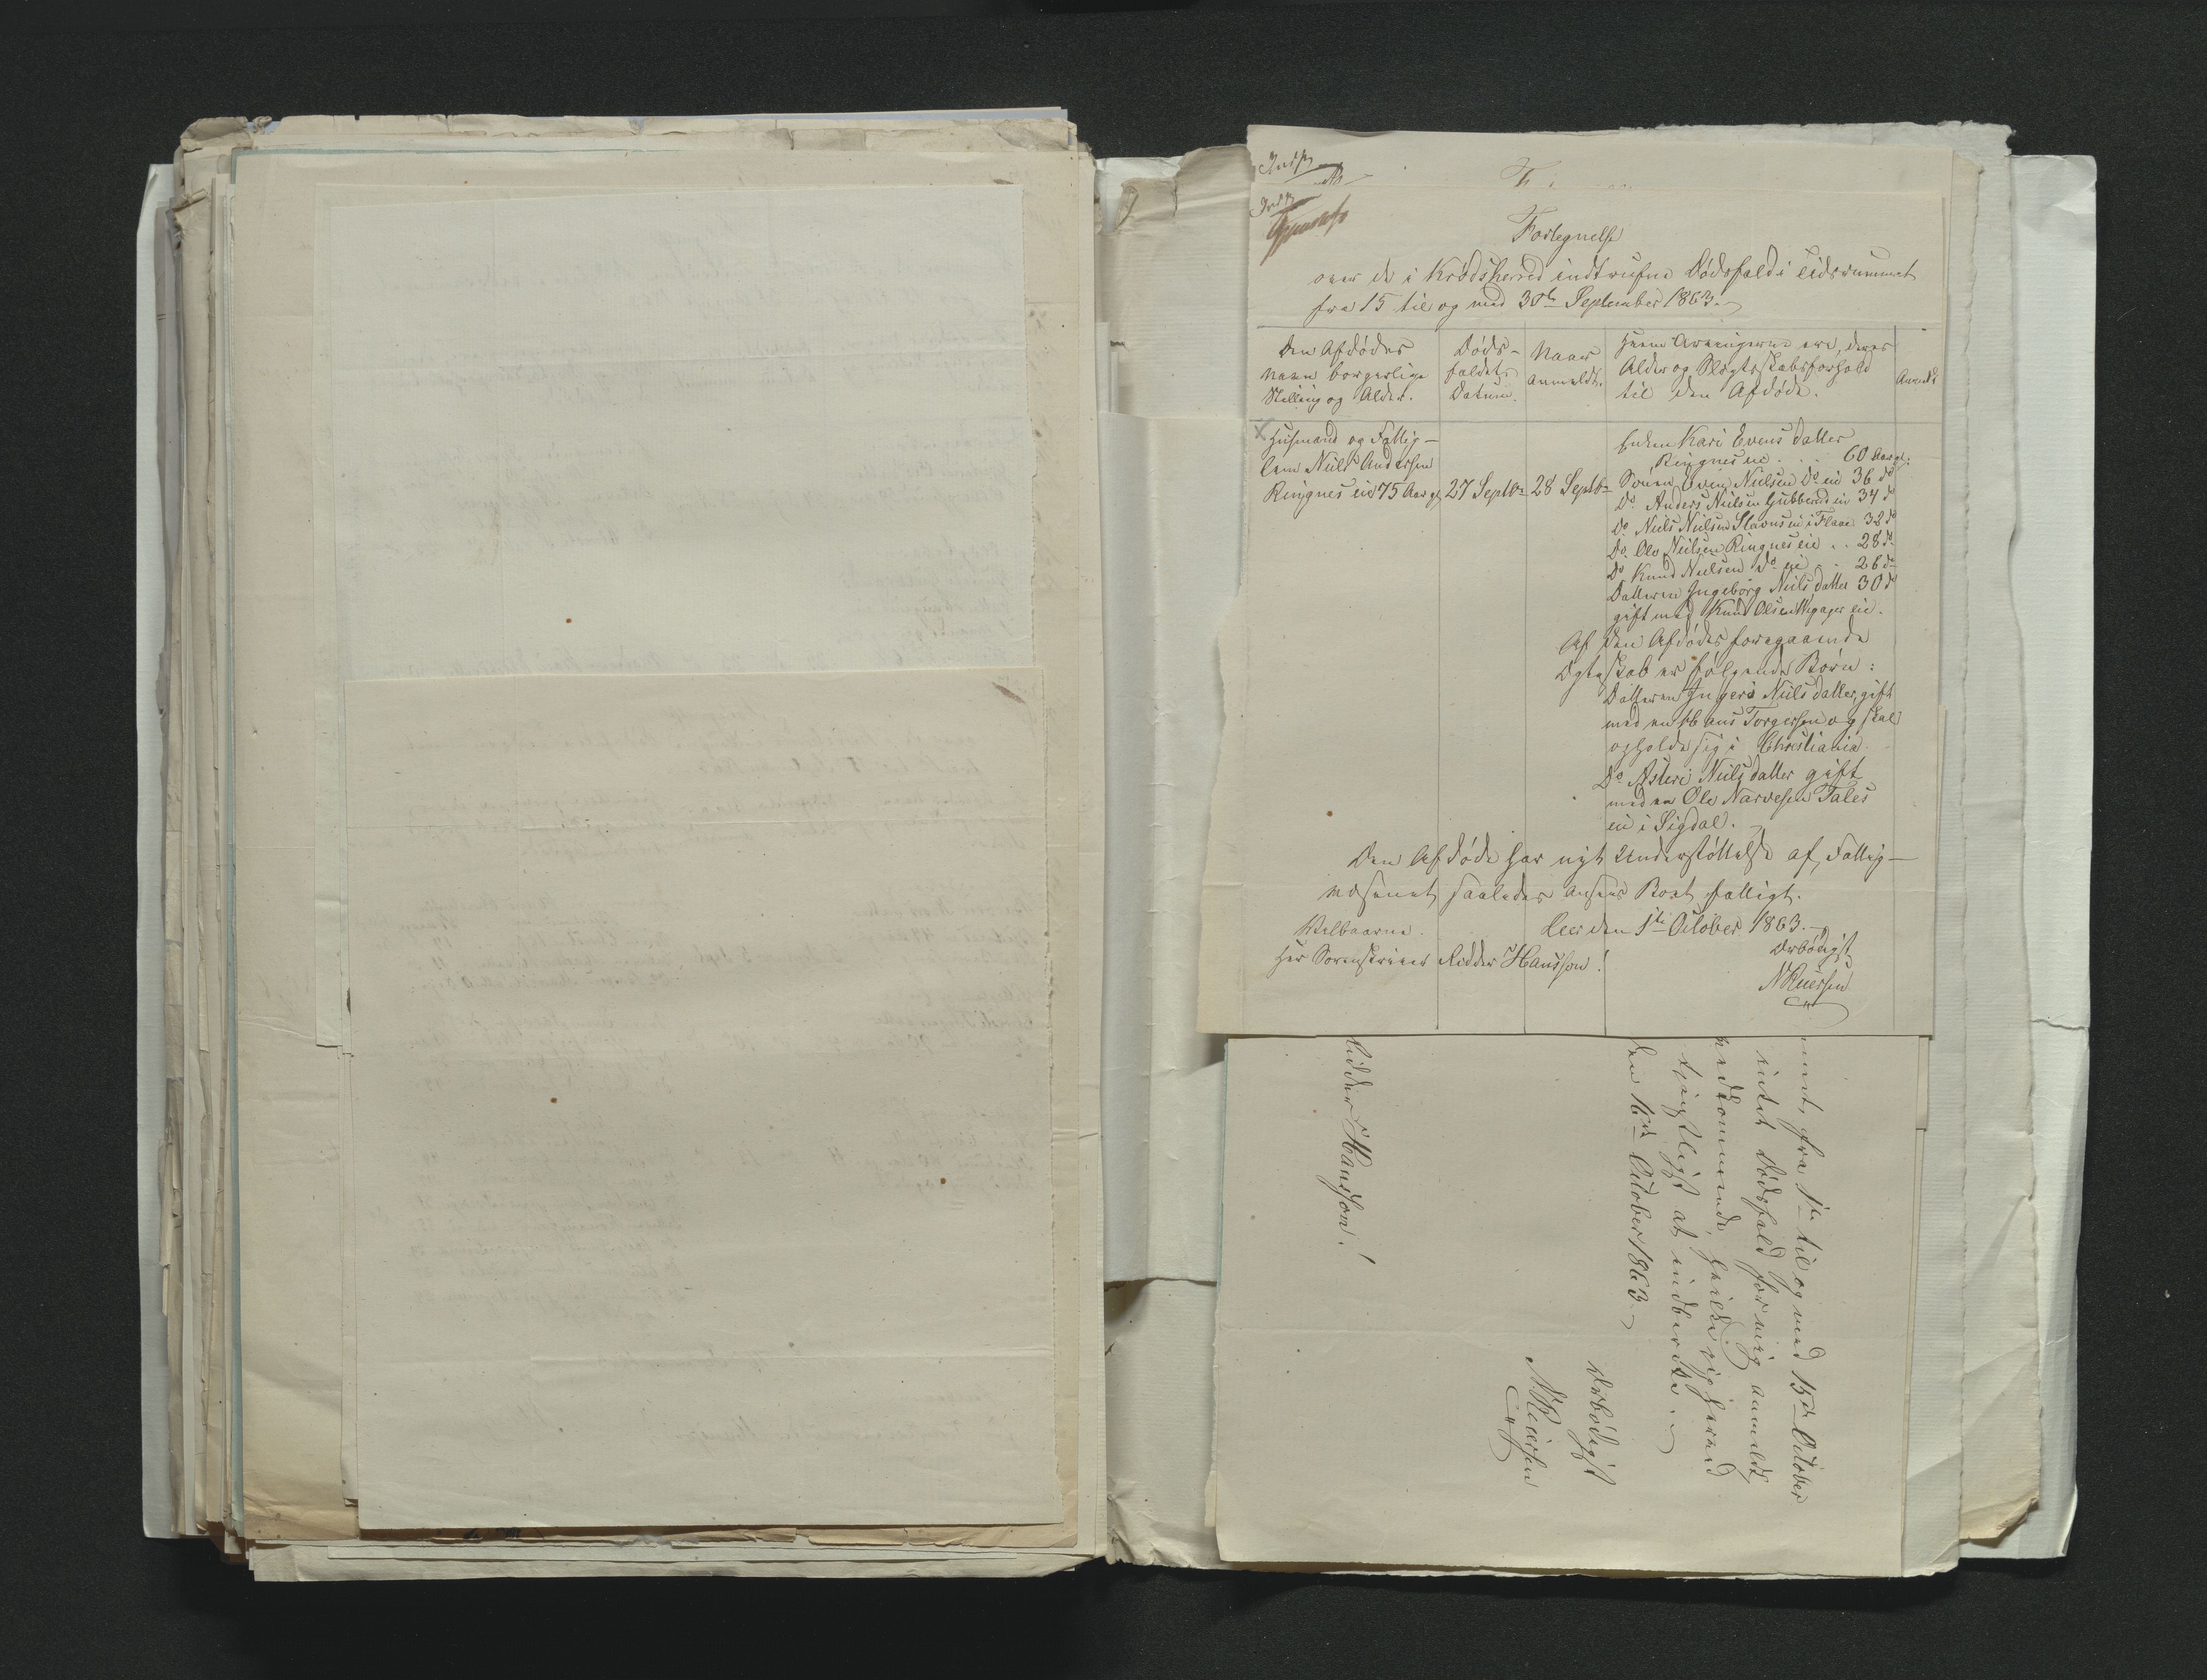 Indf
Indf
Fortegnelse
over de i Krødsherred indtrufne Dødsfald i Tidsrummet
fra 15 til og med 30te September 1863.
Den Afdødes
Navn borgerlige
Stilling og Alder.
Døds-
faldets
Datum.
Naar
anmeldt.
Hvem Arvingerne ere, deres
Alder og Slægtskabsforhold
til den Afdøde.
Anmk
Husmand og Fattig-
lem Niels Andersen
Ringnes eie 75 Aar gl
27 Septbr
28 Septbr
Enken Kari Evensdatter
Ringnes eie . . . 60 Aar gl:
Sønen Even Nielsen Do eie 36 do
Do Anders Nielsen Gubberud eie 34 do
Do Niels Nielsen Slavns eie i Flaae 32 do
Do Ole Nielsen Ringnes eie . . 28 do
Do Knud Nielsen do eie . . 26 do
Datteren Ingeborg Nielsdatter 30 do
gift med Knud Olsen eie.
Af den Afdødes foregaaende
Ægteskab er følgende Børn:
Datteren Ingeri Nielsdatter, gift
med en Hans Torgersen og skal
opholde sig i Christiania.
Do Asteri Nielsdatter gift
med en Ole Narvesen Tales
eie i Sigdal.
Den Afdøde har nydt Understøttelse af Fattig-
væsenet, saaledes ansees Boet fattigt.
Leer den 1te October 1863.
Velbaarne
Herr Sorenskriver Ridder Hansson!
Ærbødigst
N Reiersen
met, fra 1te til og med 15de October
intet Dødsfald for mig anmeldt,
vedkommende, hvilket jeg herved
tjenstligst at indberette.
den 16de October 1863.
Ærbødigst
N Reiersen
Ridder Hansson!